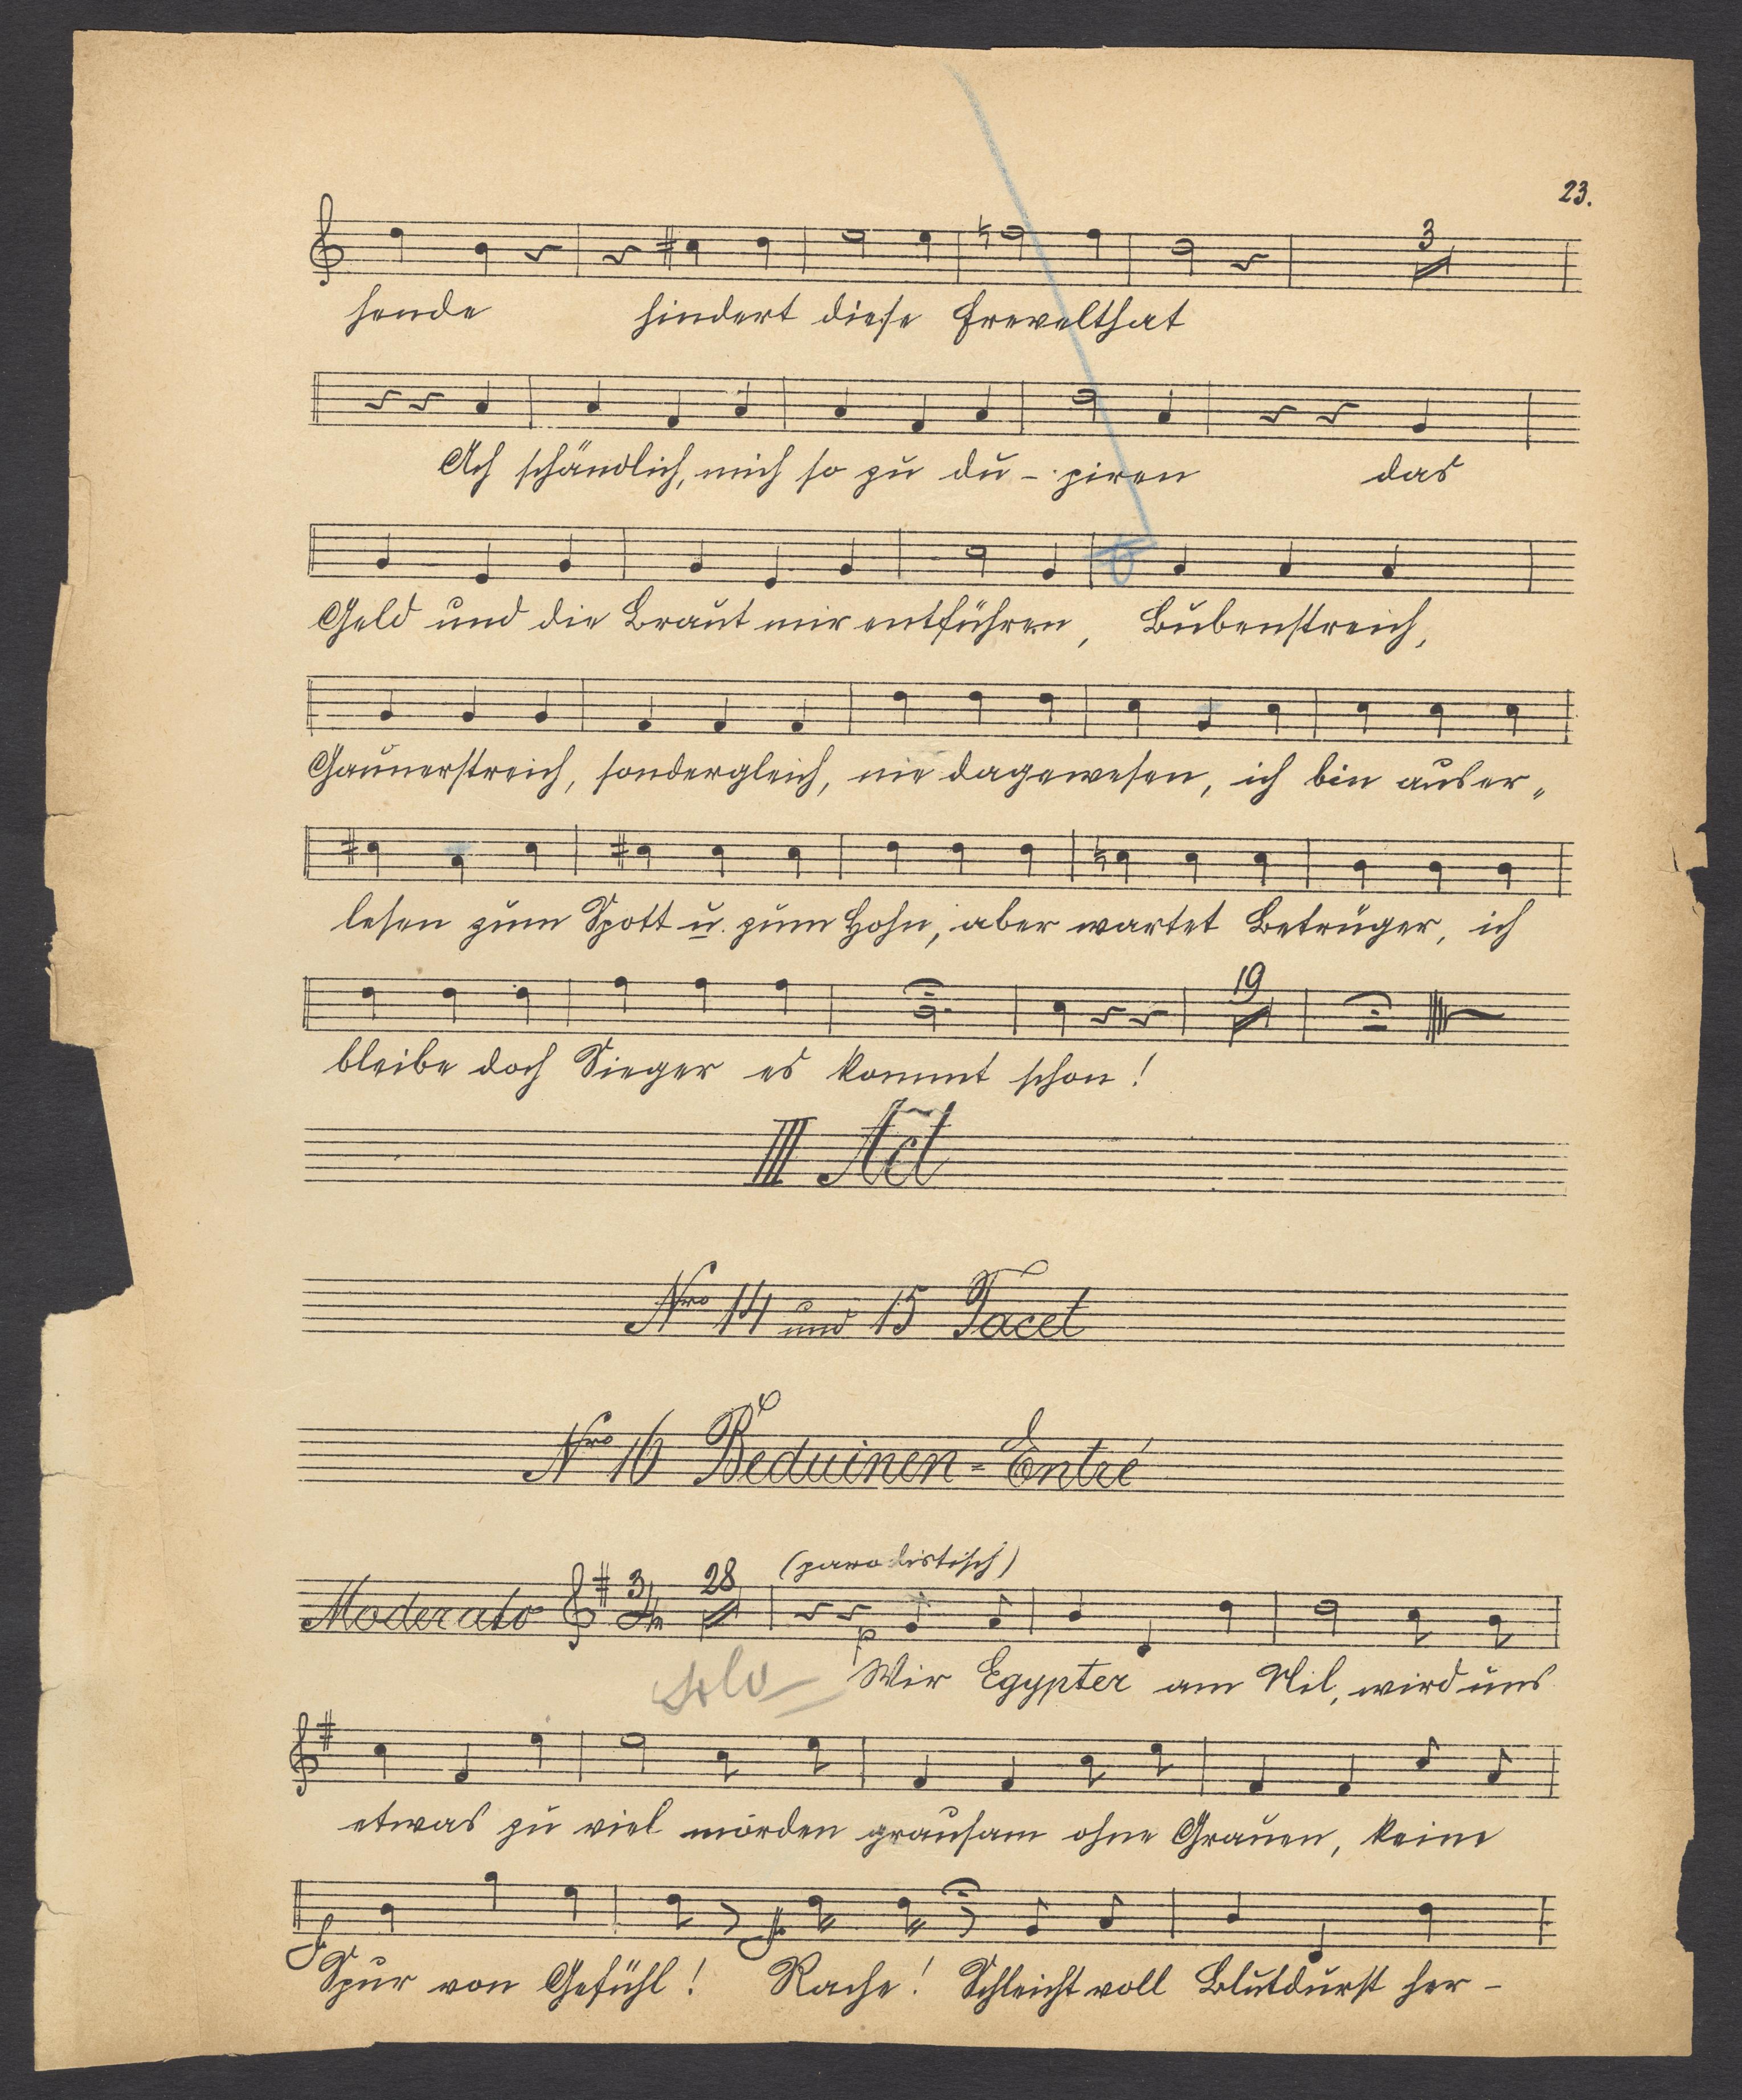 23.
3
hende hindert diese Frevelthat
Ach schändlich, mich so zu du - piren das
Geld und die Braut mir entführen, Bubenstreich,
Gaunerstreich, sondergleich, nie dagewesen, ich bin auser„
lesen zum Spott u. zum Hohn, aber wartet Betrüger, ich
19
bleibe doch Sieger es kommt schon!
III Act
Nro 14 und 15 Tacet
Nro 16 Beduinen-Entré
(parodistisch)
Moderato 3/4 28 p
solo Wir Egypter am Nil, wird uns
etwas zu viel morden grausam ohne Grauen, keine
f
Spur von Gefühl! Rache! Schleicht voll Blutdurst her -